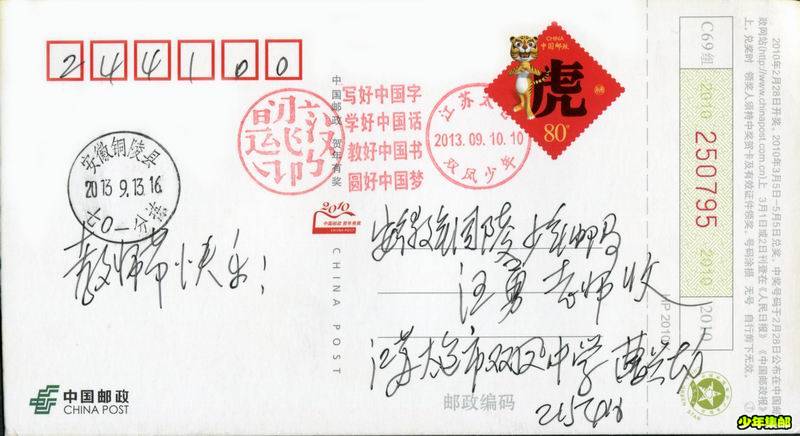 244100
中国邮政 贺年有奖
写好中国字
学好中国话
教好中国书
圆好中国梦
江苏太仓
2013.09.10.10
双凤少年
CHINA
中国邮政
虎
80分
安徽铜陵县
2013.9.13.16
2010
中国邮政 贺年有奖
CHINA POST
CHINA POST
教师节快乐!
安徽铜陵少年邮局
汪勇老师收
江苏太仓市双凤中学
215416
邮政编码
中国邮政
CHINA POST
C69组
2010
250795
2010
HP2010
2010年2月28日开奖,2010年3月5日—5月5日兑奖。中奖号码于2月28日公布在中国邮
政网站(http://www.chinapost.com.cn)上,3月1日或2日刊登在《人民日报》《中国邮政报》
上。兑奖时,领奖人须持中奖贺卡及有效证件领奖。号码涂损 无号 自行剪下无效。
少年集邮